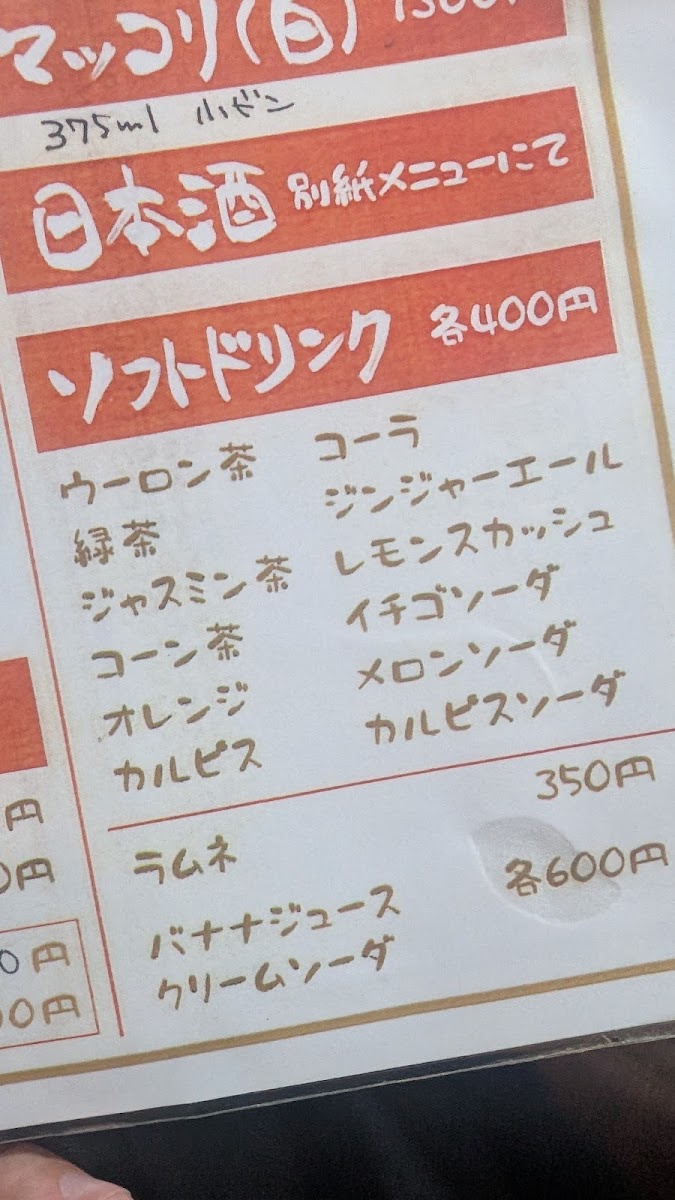 マッコリ(白)
375ml 小ビン
日本酒 別紙メニューにて
ソフトドリンク 各400円
ウーロン茶
緑茶
ジャスミン茶
コーン茶
オレンジ
カルピス
コーラ
ジンジャーエール
レモンスカッシュ
イチゴソーダ
メロンソーダ
カルピスソーダ
ラムネ 350円
バナナジュース 各600円
クリームソーダ
円
0円
0円
00円